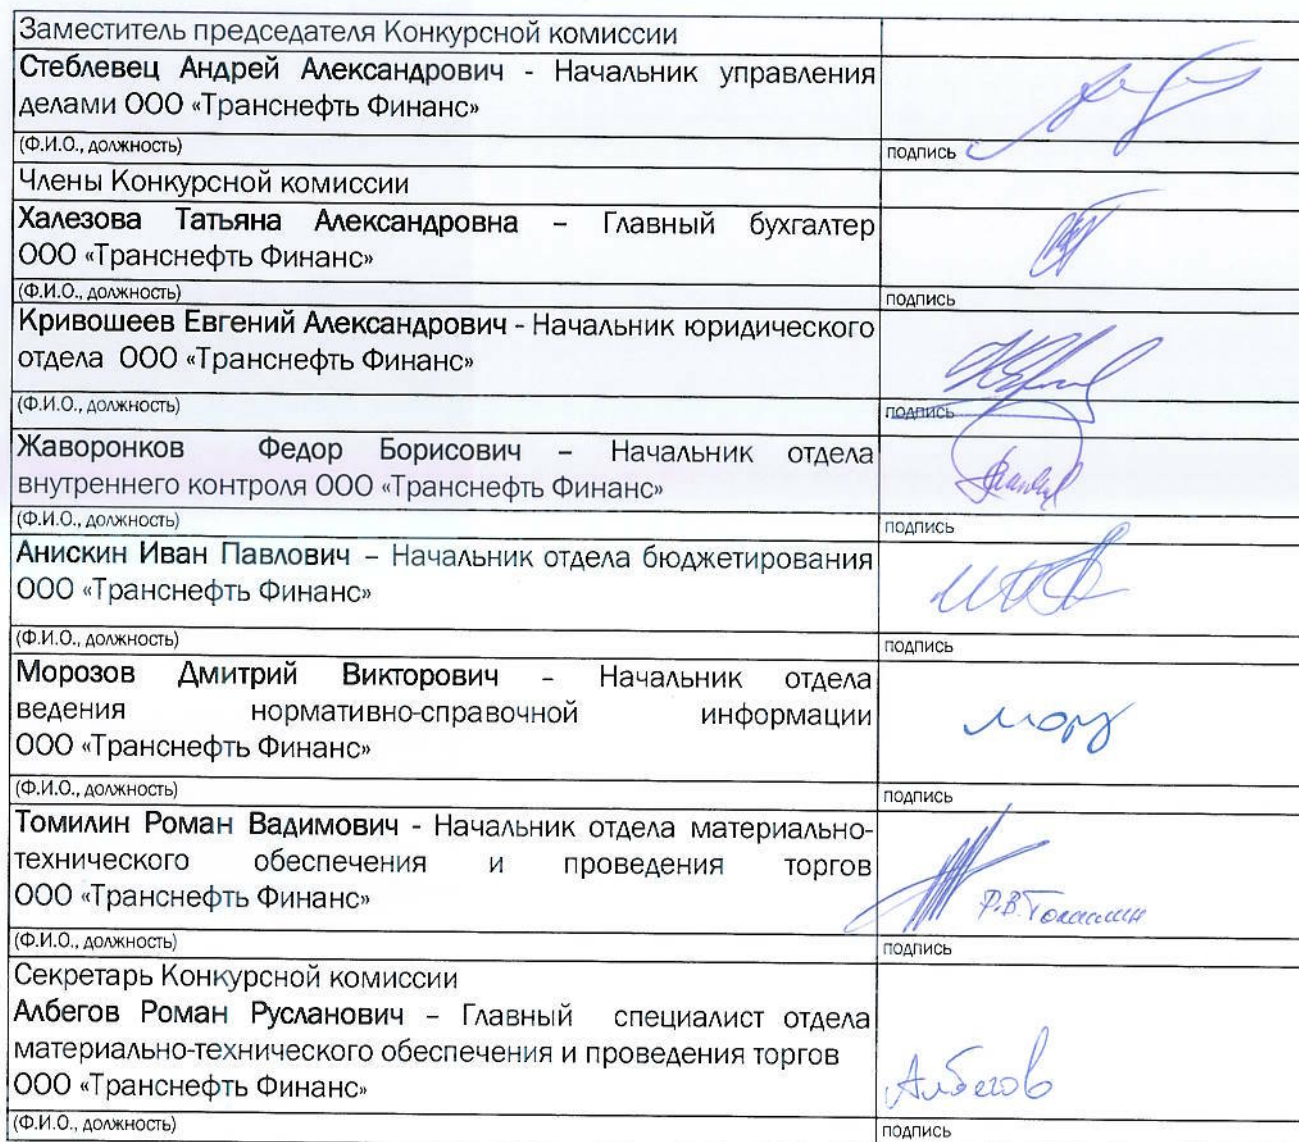 Заместитель председателя Конкурсной комиссии
Стеблевец Андрей Александрович - Начальник управления
делами ООО «Транснефть Финанс»
(Ф.И.О., должность) подпись
Члены Конкурсной комиссии
Халезова Татьяна Александровна – Главный бухгалтер
ООО «Транснефть Финанс»
(Ф.И.О., должность) подпись
Кривошеев Евгений Александрович - Начальник юридического
отдела ООО «Транснефть Финанс»
(Ф.И.О., должность) подпись
Жаворонков Федор Борисович – Начальник отдела
внутреннего контроля ООО «Транснефть Финанс»
(Ф.И.О., должность) подпись
Анискин Иван Павлович – Начальник отдела бюджетирования
ООО «Транснефть Финанс»
(Ф.И.О., должность) подпись
Морозов Дмитрий Викторович - Начальник отдела
ведения нормативно-справочной информации
ООО «Транснефть Финанс»
(Ф.И.О., должность) подпись
Томилин Роман Вадимович - Начальник отдела материально-
технического обеспечения и проведения торгов
ООО «Транснефть Финанс»
Р.В.Томилин
(Ф.И.О., должность) подпись
Секретарь Конкурсной комиссии
Албегов Роман Русланович – Главный специалист отдела
материально-технического обеспечения и проведения торгов
ООО «Транснефть Финанс»
Албегов
(Ф.И.О., должность) подпись